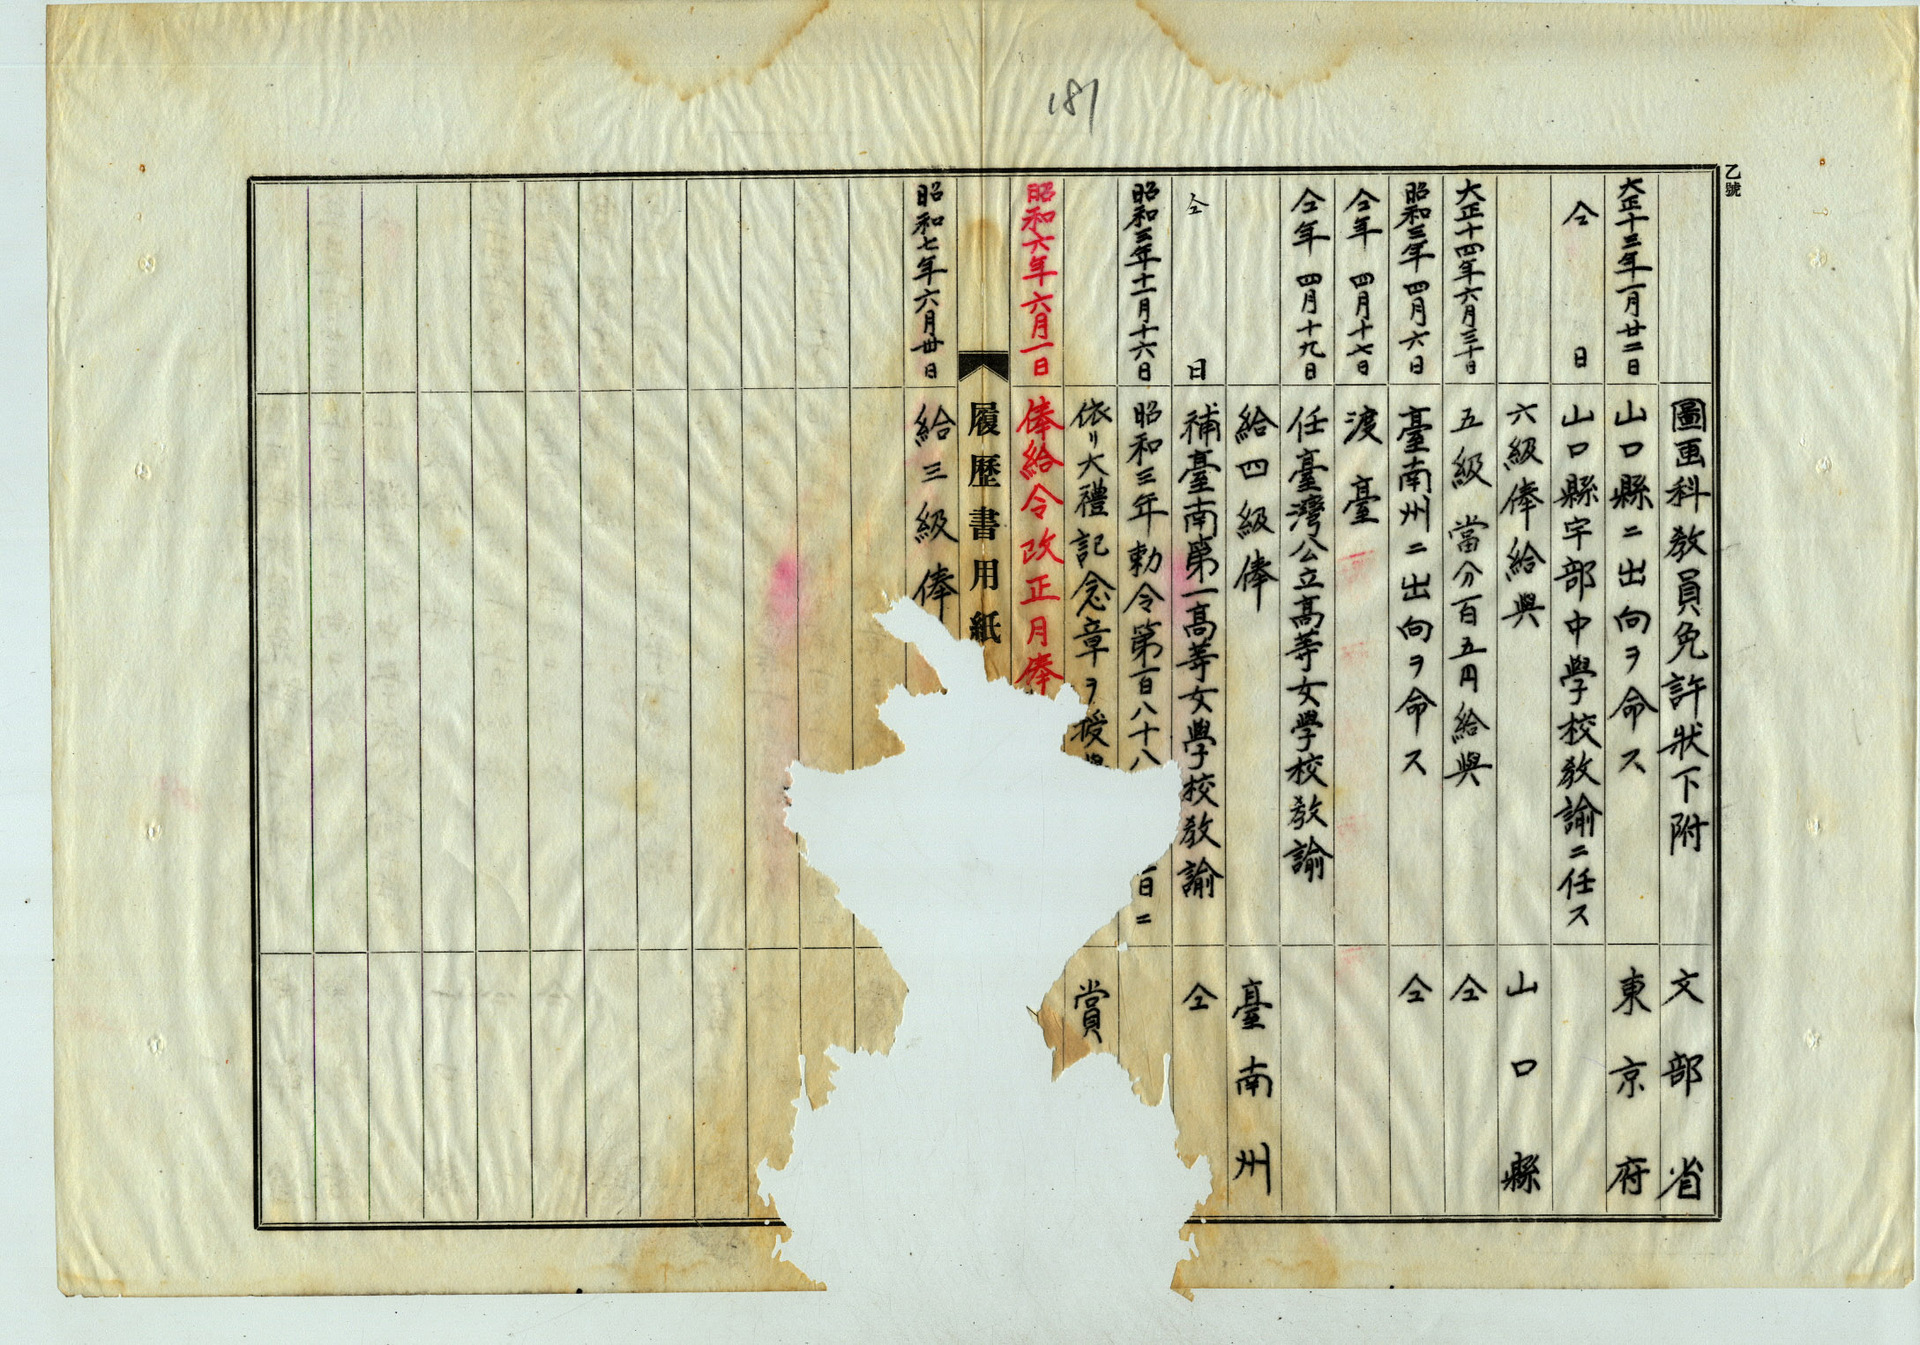 181
乙號
圖画科教員免許狀下附 文部省
大正十三年一月廿二日 山口縣ニ出向ヲ命ス 東京府
仝 日 山口縣宇部中學校教諭ニ任ス
六級俸給與 山口縣
大正十四年六月三十日 五級 當分百五円給與 仝
昭和三年四月六日 臺南州ニ出向ヲ命ス 仝
仝年四月十七日 渡臺
仝年四月十九日 任臺灣公立高等女學校教諭
給四級俸 臺南州
仝 日 補臺南第一高等女學校教諭 仝
昭和三年十一月十六日 昭和三年勅令第百八十八 ニ
依リ大禮記念章ヲ授 賞
昭和六年六月一日 俸給令改正月俸
履歷書用紙
昭和七年六月卅日 給三級俸